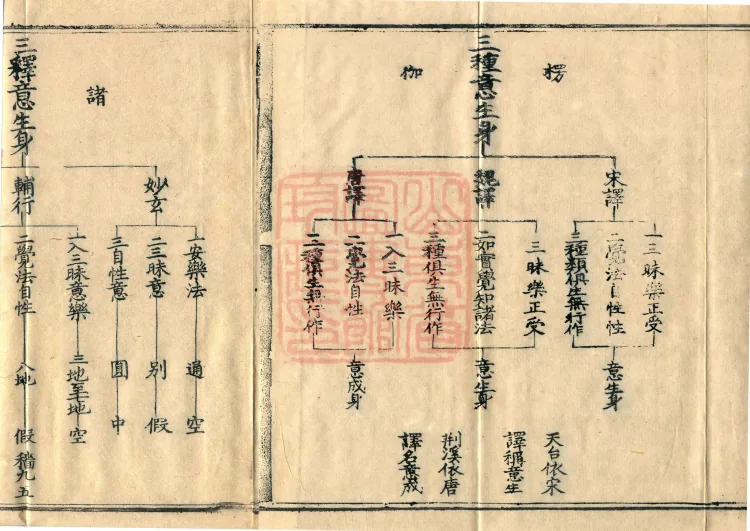 楞
伽
三種意生身
宋譯
一三昧樂正受
二覺法自性性
三種類俱生無行作
意生身
魏譯
三昧樂正受
二如實覺知諸法
三種俱生無行作
意生身
唐譯
一入三昧樂
二覺法自性
三種俱生無行作
意成身
天台依宋
譯稱意生
荆溪依唐
譯名意成
諸
三釋意生身
妙玄
一安樂法 通 空
二三昧意 別 假
三自性意 圓 中
輔行
一入三昧意樂 三地至地 空
二覺法自性 八地 假
九五